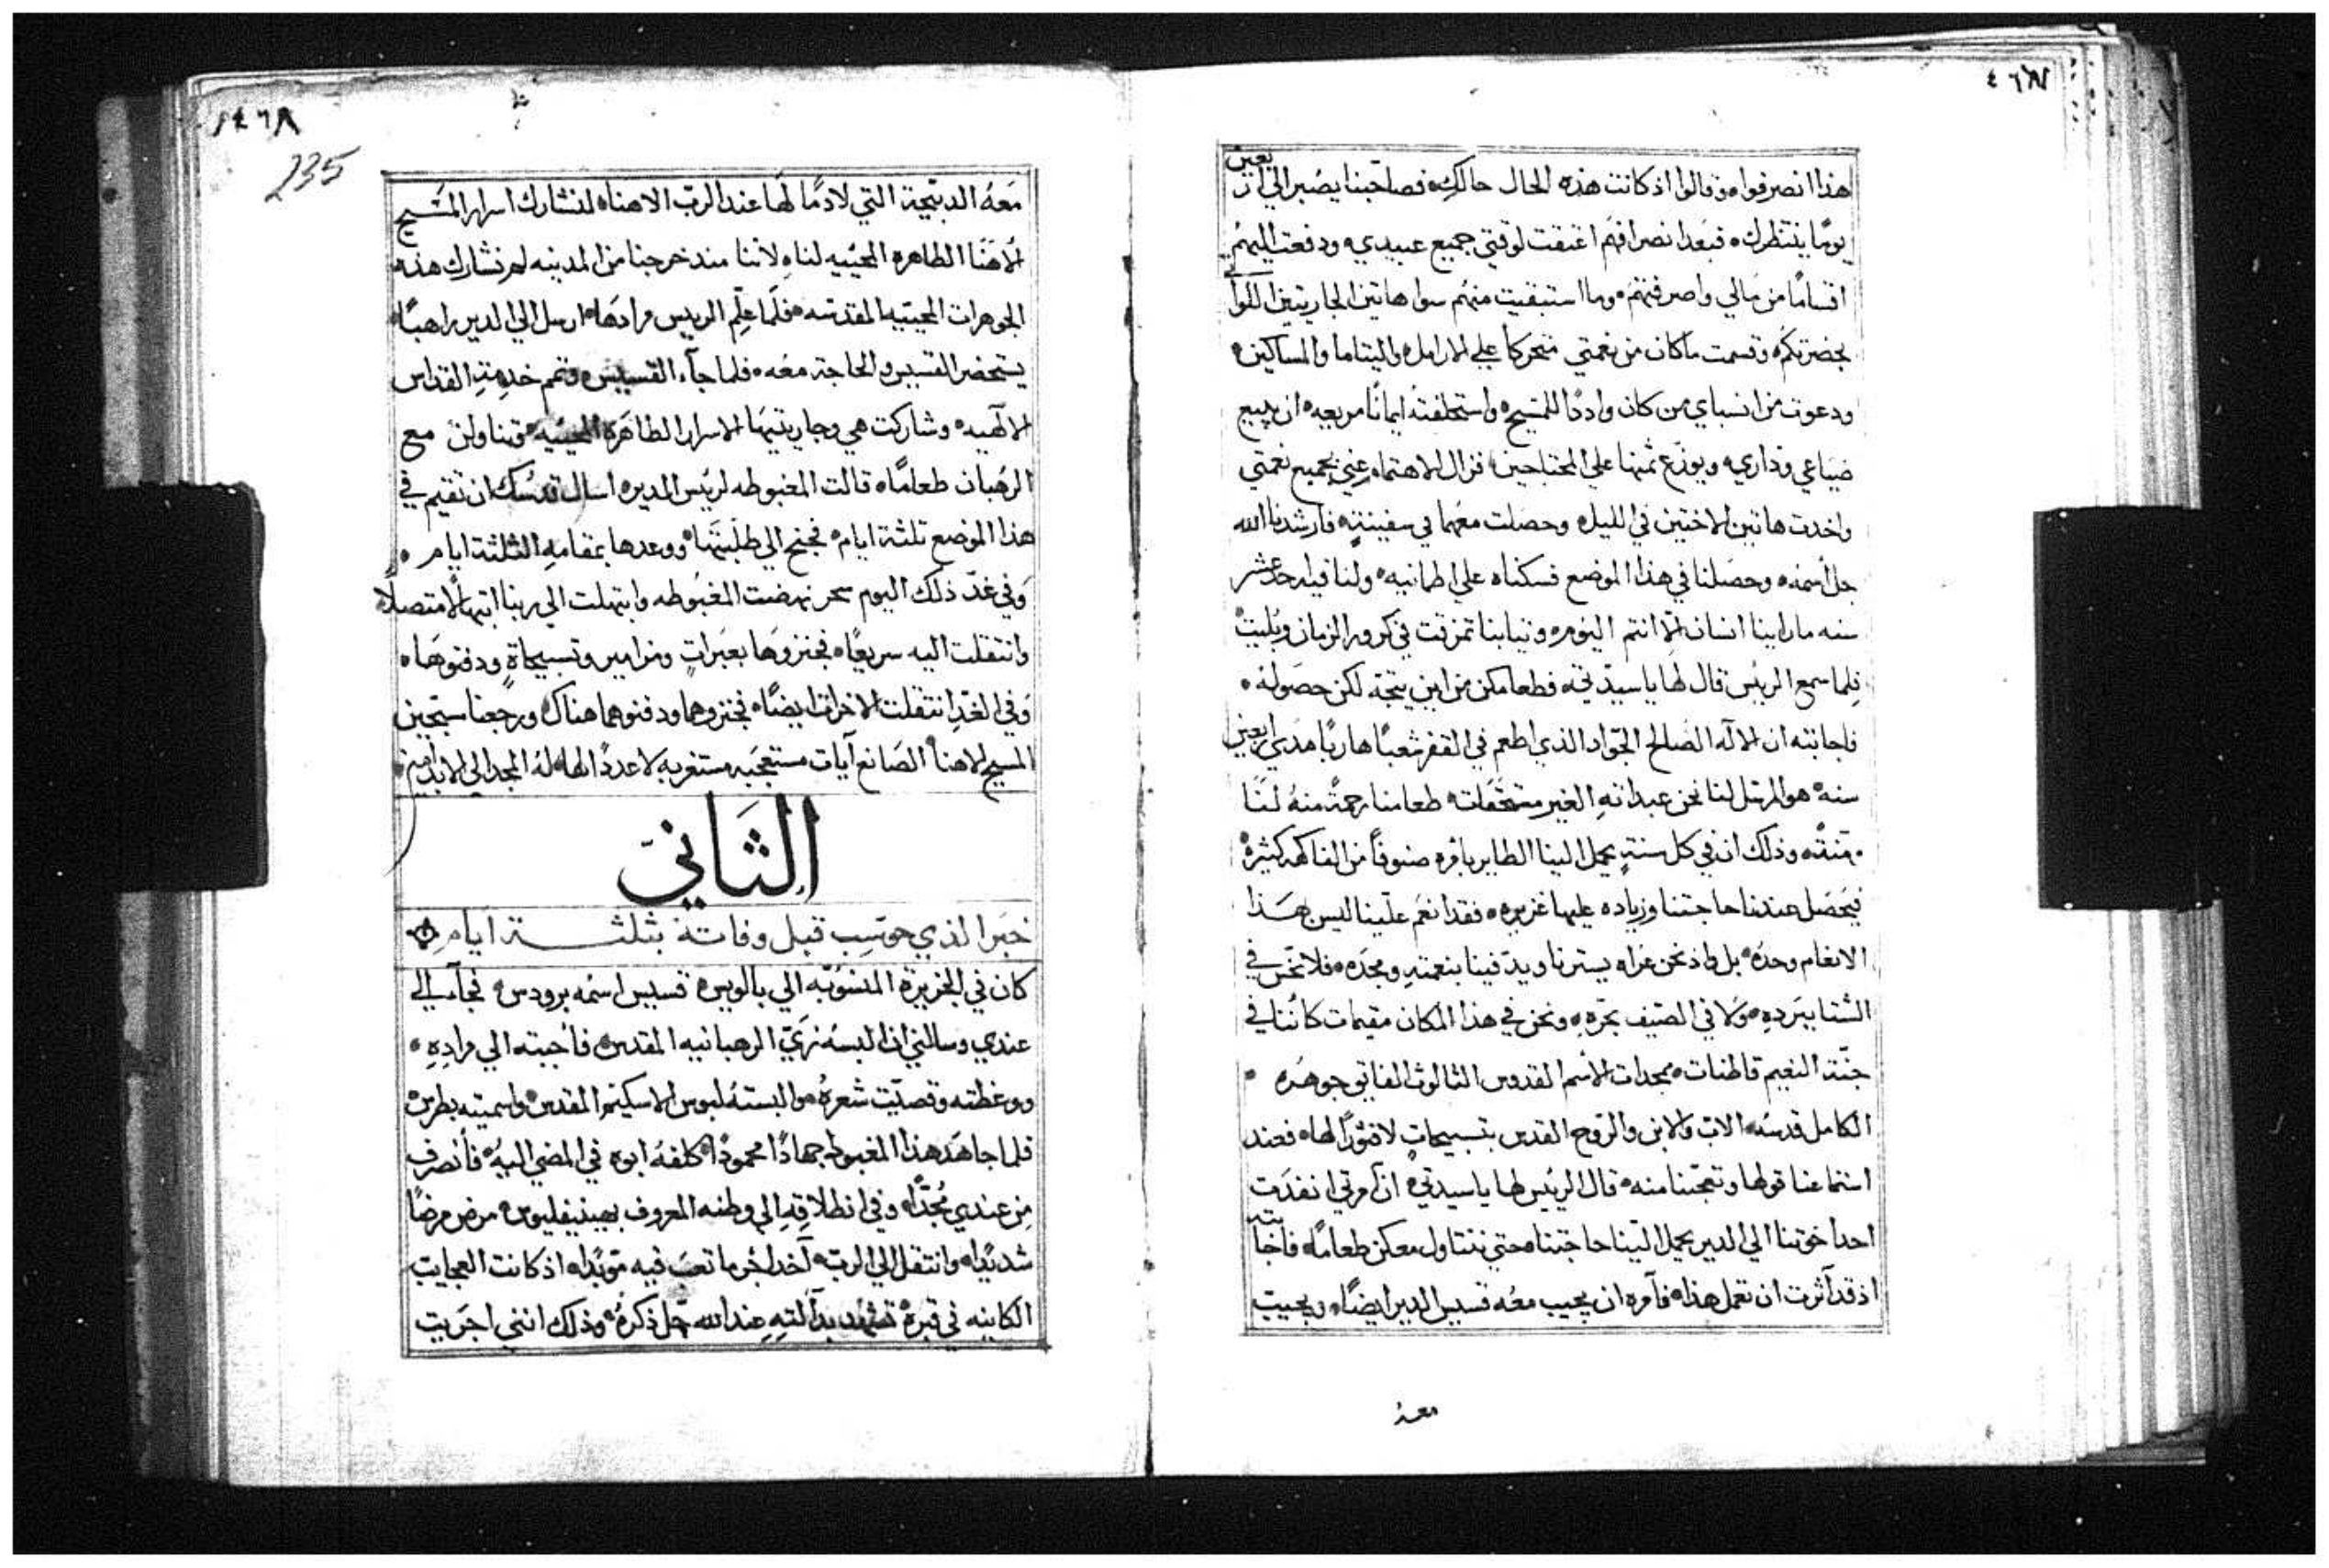 ٤٦٧
هذا انصرفوا، وقالوا اذ كانت هذه الحال حالك، فصاحبنا يصبر الي اربعين
يومًا ينتظرك، فبعد انصرافهم اعتقت لوقتي جميع عبيدي، ودفعت اليهم
اقسامًا من مالي واصرفتهم، وما استبقيت منهم سوا هاتين الجاريتين اللواتي
بحضرتكم، وقسمت ماكان من نعمتي متحركا علي الارامل، واليتاما والمساكين،
ودعوت من انسباي من كان وادًا للمسيح، واستحلفته ايمانًا مربعه، ان يبيع
ضياعي وداري، ويوزع ثمنها علي المحتاجين، فزال الاهتمام عني بجميع نعمتي
واخدت هاتين الاختين في الليل، وحصلت معهما في سفينةٍ، فارشدنا الله
جل اسمه، وحصلنا في هذا الموضع فسكناه علي اطمانيه، ولنا فيه احد عشر
سنه ما راينا انسان الا انتم اليوم، وتيابنا تمزقت في كرور الزمان وبُليت
فلما سمع الريس قال لها يا سيدتي، فطعامكن من اين يتجه لكن حصوله،
فاجابته ان الاله الصالح الجواد الذي اطعم في القفر شعبًا هاربًا مدي اربعين
سنه، هو المرسل لنا نحن عبداته الغير مستحقات، طعامنا رحمةً منهُ لنا
وذلك ان في كل سنةٍ يحمل الينا الطاير بامره صنوفًا من الفاكهه كثيرة
فيحصل عندنا حاجتنا وزياده عليها غزيره، فقد انعم علينا ليس هذا
الانعام وحده، بل واذ نحن عراه يسترنا ويدفينا بنعمته ومجده، فلا نحس في
الشتا ببرده، ولا في الصيف بحره، ونحن في هذا المكان مقيمات كاننا في
جنة النعيم قاطنات، ممجدات الاسم القدوس الثالوث الفايق جوهره،
الكامل قدسه، الاب والابن والروح القدس بتسبيحاتٍ لا فتورًا لها، فعند
استماعنا قولها وتعجبنا منه، قال الريس لها يا سيدتي، ان امرتي انفدت
احد اخوتنا الي الدير يحمل الينا حاجتنا، حتي نتناول معكن طعامًا، فاجابته
اذ قد آثرت ان تعمل هذا، فآمره ان يجيب معه قسيس الدير ايضًا، ويجيب
معهُ
٤٦٨
235
مَعهُ الدبيحة التي لا دمًا لها عند الرب الاهنا، لنشارك اسرار المسيح
الاهنا الطاهره المحييه لنا، لاننا مند خرجنا من المدينه لم نشارك هذه
الجوهرات المحييه المقدسه، فلما علم الريس مرادها، ارسل الي الدير راهبًا
يستحضر القسيس والحاجة معه، فلما جآء القسيس وتمم خدمة القداس
الالهيه، وشاركت هي وجاريتيها الاسرار الطاهرة المحييه، وتناولن مع
الرهبان طعامًا، قالت المغبوطه لريس الدير، اسال قدسك ان تقيم في
هذا الموضع تلثة ايام، فجنح الي طلبتها، ووعدها بمقامه الثلثة ايام،
وفي غدّ ذلك اليوم سحر نهضت المغبوطه وابتهلت الي ربنا ابتهالًا متصلًا،
وانتقلت اليه سريعًا، فجنزوها بعبراتٍ ومزامير وتسبيحاةٍ ودفنوها،
وفي الغدِ انتقلت الاخرتان ايضًا، فجنزوهما ودفنوهما هناك، ورجعنا سبحين
المسيح الاهنا، الصانع آيات مستعجبه مستغربه لا عددًا لها، لهُ المجد الي الابد امين،
الثَاني
خبر الذي حوسب قبل وفاته بثلثة ايام
كان في الجزيرة المنسوبه الي بالويس، قسيس اسمه برودس، فجآ الي
عندي وسالني ان البسهُ زيّ الرهبانيه المقدس، فاجبته الي مراده،
ووعظته وقصيت شعرهُ، والبستهُ لبوس الاسكيم المقدس، واسميته بطرس
فلما جاهد هذا المغبوط جهادًا محمودًا، كلفهُ ابوه في المضي اليه، فأنصرف
من عندي مُجدًّا، وفي انطلاقه الي وطنه المعروف مرض مرضًا
شديدًا، وانتقل الي الرب، آخدًا اجر ما تعب فيه موبدًا، اذ كانت العجايب
الكاينه في قبره تشهد بدآلته عند الله جل ذكره، وذلك انني اجريت